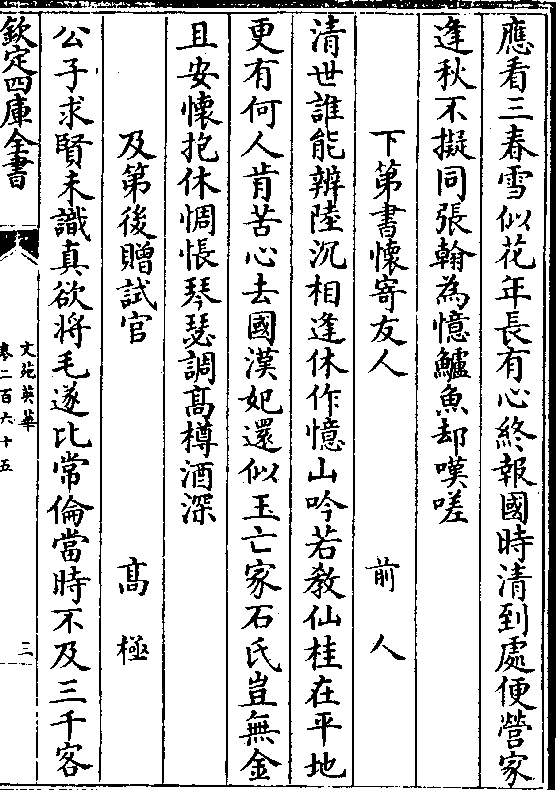 應看三春雪似花年長有心終報國時清到處便營家
逢秋不擬同張翰為憶鱸魚却嘆嗟
下第書懷寄友人 前人
清世誰能辨陸沉相逢休作憶山吟若教仙桂在平地
更有何人肯苦心去國漢妃還似玉亡家石氏豈無金
且安懷抱休惆悵琴瑟調高樽酒深
及第後贈試官 高極
公子求賢未識真欲將毛遂比常倫當時不及三千客
欽定四庫全書
文苑英華
卷二百六十五
三